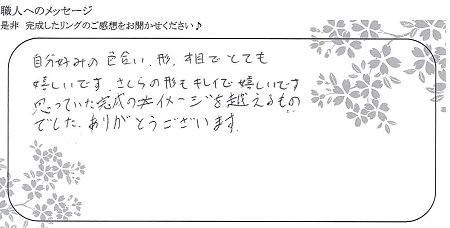 職人へのメッセージ
是非 完成したリングのご感想をお聞かせください♪
自分好みの色合い、形、木目でとても
嬉しいです。さくらの形もキレイで嬉しいです
思っていた完成のイメージを越えるもの
でした。ありがとうございます。